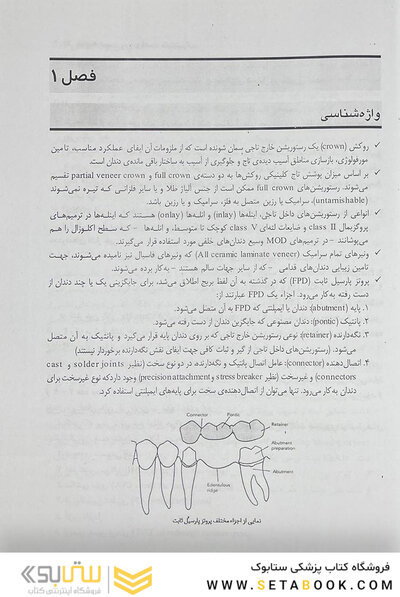 فصل ۱
واژه‌شناسی
✓ روکش (crown) یک رستوریشن خارج تاجی سمان شونده است که از ملزومات آن ایفای عملکرد مناسب، تامین
مورفولوژی، بازسازی مناطق آسیب دیده‌ی تاج و جلوگیری از آسیب به ساختار باقی مانده‌ی دندان است.
✓ بر اساس میزان پوشش تاج کلینیکی روکش‌ها به دو دسته‌ی full crown و partial veneer crown تقسیم
می‌شوند. رستوریشن‌های full crown ممکن است از جنس آلیاژ طلا و یا سایر فلزاتی که تیره نمی‌شوند
(untarnishable)، سرامیک یا رزین متصل به فلز، سرامیک و یا رزین باشد.
✓ انواعی از رستوریشن‌های داخل تاجی، اینله‌ها (inlay) و انله‌ها (onlay) هستند که اینله‌ها در ترمیم‌های
پروگزیمال class II و ضایعات لثه‌ای class V کوچک تا متوسط، و انله‌ها - که سطح اکلوزال را هم
می‌پوشانند - در ترمیم‌های MOD وسیع دندان‌های خلفی مورد استفاده قرار می‌گیرند.
✓ ونیرهای تمام سرامیک (All ceramic laminate veneer) که ونیرهای فاسیال نیز نامیده می‌شوند، جهت
تامین زیبایی دندان‌های قدامی - که از سایر جهات سالم هستند - به کار برده می‌شوند.
✓ پروتز پارسیل ثابت (FPD) که در گذشته به آن لفظ بریج اطلاق می‌شد، برای جایگزینی یک یا چند دندان از
دست رفته به‌کار می‌رود. اجزاء یک FPD عبارتند از:
۱. پایه (abutment): دندان یا ایمپلنتی که FPD به آن متصل می‌شود.
۲. پانتیک (pontic): دندان مصنوعی که جایگزین دندان از دست رفته می‌شود.
۳. نگه‌دارنده (retainer): نوعی رستوریشن خارج تاجی که بر روی دندان پایه قرار می‌گیرد و پانتیک به آن متصل
می‌شود. (رستوریشن‌های داخل تاجی از گیر و ثبات کافی جهت ایفای نقش نگه‌دارنده برخوردار نیستند)
۴. اتصال‌دهنده (connector): عامل اتصال پانتیک و نگه‌دارنده که در دو نوع سخت (نظیر solder joints و cast
connectors) و غیرسخت (نظیر stress breaker و precision attachment) وجود دارد که نوع غیرسخت برای
دندان به کار می‌رود. تنها می‌توان از اتصال‌دهنده‌ی سخت برای پایه‌های ایمپلنتی استفاده کرد.
Connector
Pontic
Retainer
Abutment
preparation
Abutment
Edentulous
ridge
نمایی از اجزاء مختلف پروتز پارسیل ثابت
ستابوک
فروشگاه اینترنتی کتاب
فروشگاه کتاب پزشکی ستابوک
WWW.SETABOOK.COM